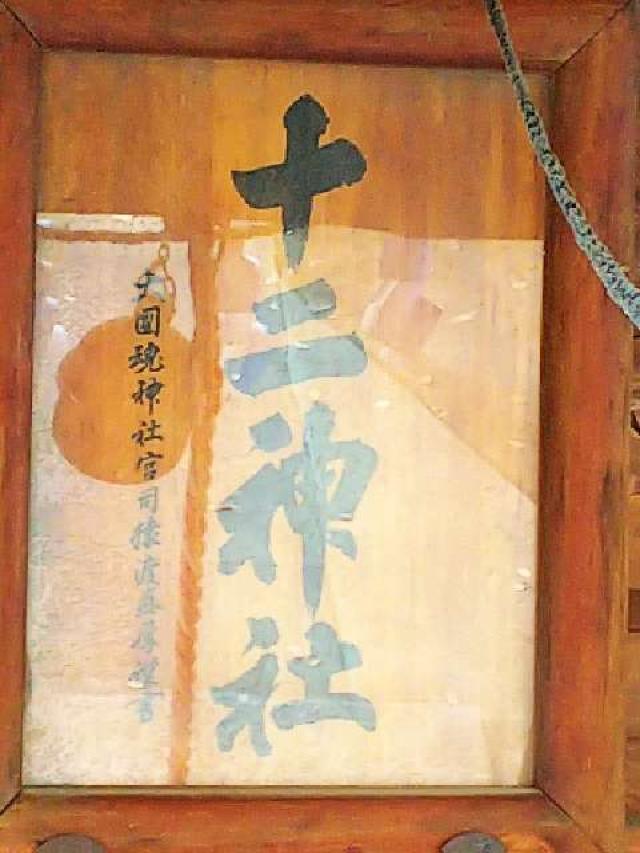 十二神社
大國魂神社宮司猿渡盛厚謹書